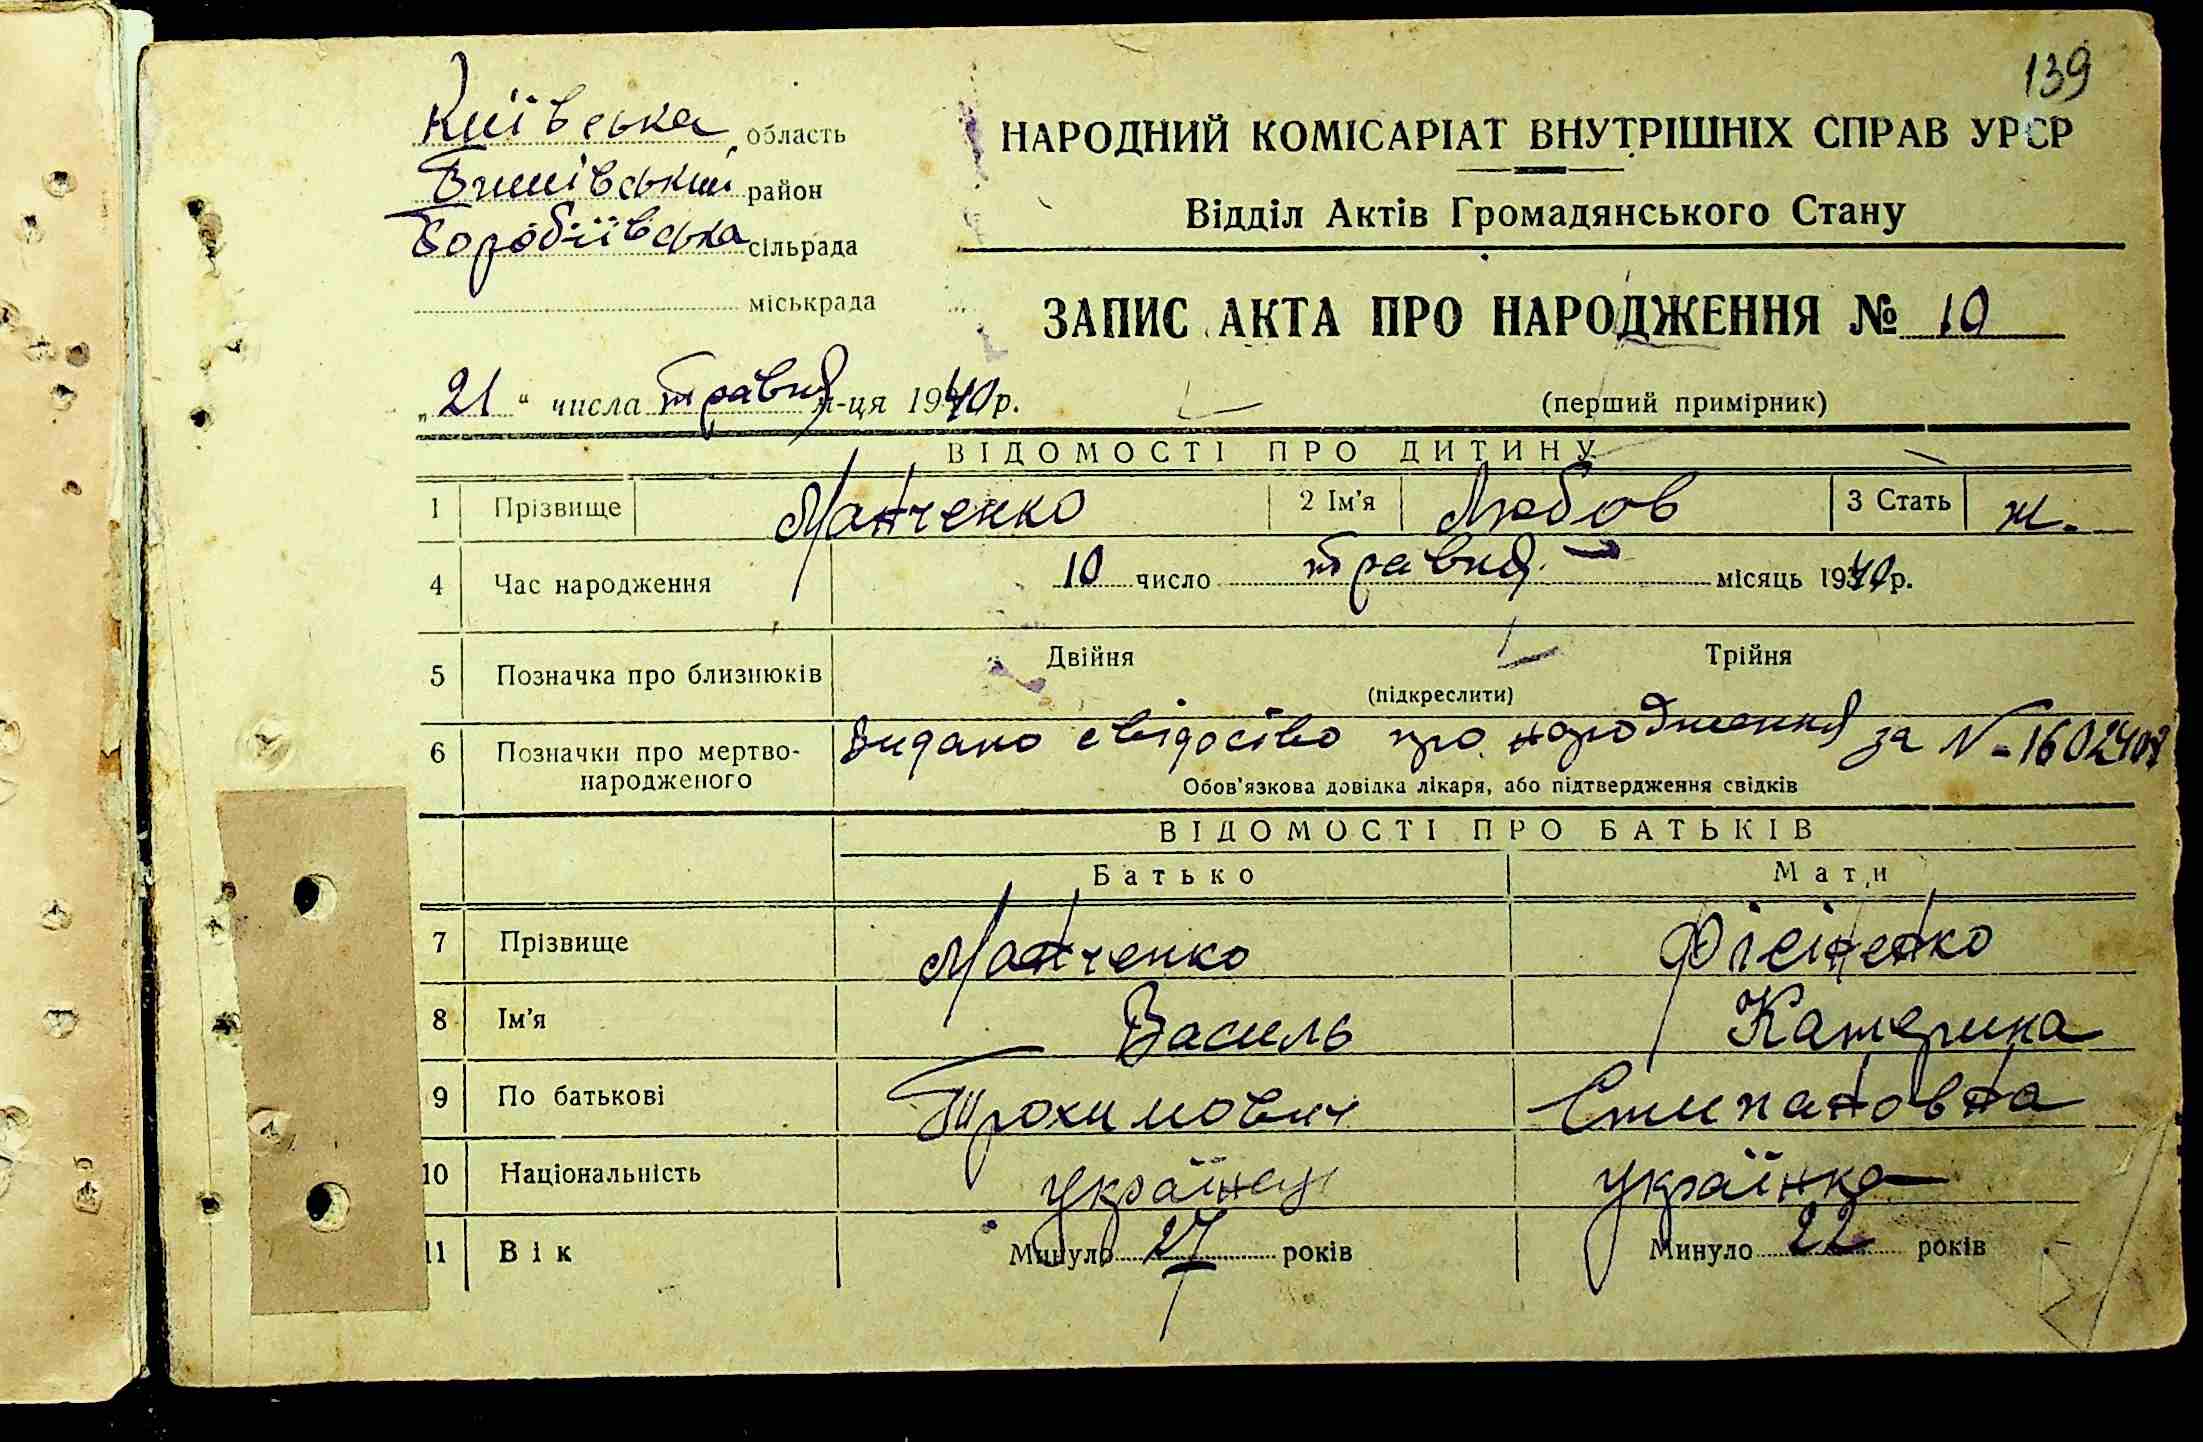 139
Київська область
район
сільрада
міськрада
НАРОДНИЙ КОМІСАРІАТ ВНУТРІШНІХ СПРАВ УРСР
Відділ Актів Громадянського Стану
ЗАПИС АКТА ПРО НАРОДЖЕННЯ № 10
„21“ числа травня м-ця 1940 р.
(перший примірник)
ВІДОМОСТІ ПРО ДИТИНУ
1 Прізвище Манченко 2 Ім'я Любов 3 Стать ж.
4 Час народження 10 число травня місяць 1940 р.
5 Позначка про близнюків Двійня Трійня
(підкреслити)
6 Позначки про мертво-народженого Видано свідоство про народження за №
Обов'язкова довідка лікаря, або підтвердження свідків
ВІДОМОСТІ ПРО БАТЬКІВ
Батько Мати
7 Прізвище Манченко Фісіненко
8 Ім'я Василь Катерина
9 По батькові Трохимович Стипановна
10 Національність українец українка
11 Вік Минуло 27 років Минуло 22 років